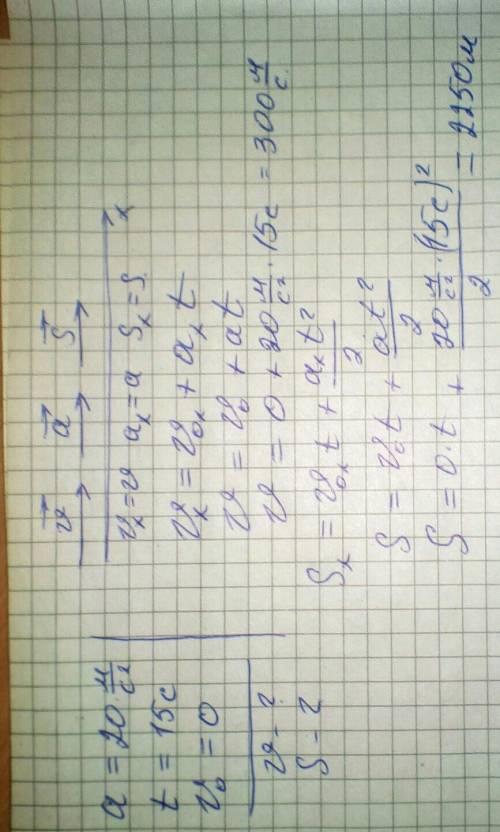 a = 20 м/с²
t = 15с
v₀ = 0
v - ?
S - ?
v⃗ a⃗ S⃗
vₓ = v aₓ = a Sₓ = S x
vₓ = v₀ₓ + aₓ t
v = v₀ + at
v = 0 + 20 м/с² · 15с = 300 м/с
Sₓ = v₀ₓ t + aₓt²/2
S = v₀t + at²/2
S = 0·t + 20 м/с² · (15с)²/2 = 2250м